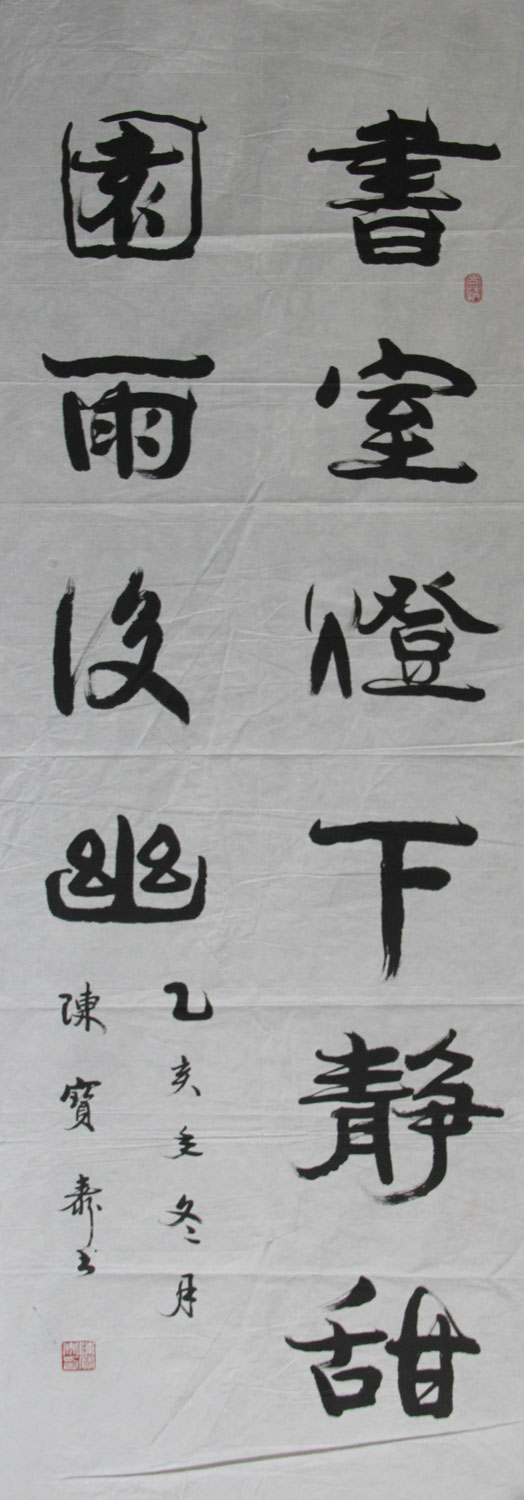 書室燈下靜甜
園雨後幽
乙亥年冬月
陳寶泰书